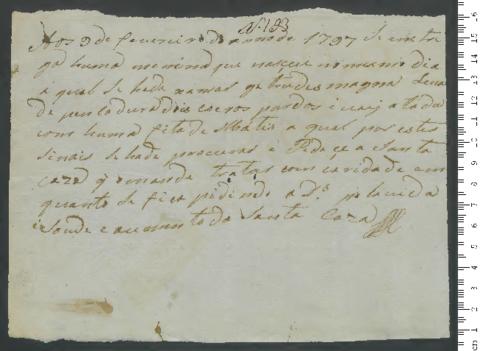 N. 193
Aos 9 de fevereiro do anno de 1797 se emteitou
hua menina que nasceu no mesmo dia
a qual se hade xamar Gertrudes magna Leva
de pontadura dois coeros pardos i vai atada
com huma fita de Matis a qual por estes
sinais se hade procurar i Pede çe a Santa
Caza q̃ o manda tratar com caridade em
quanto se fica pedindo a D.s pela vida
i saude e aumento da Santa Caza